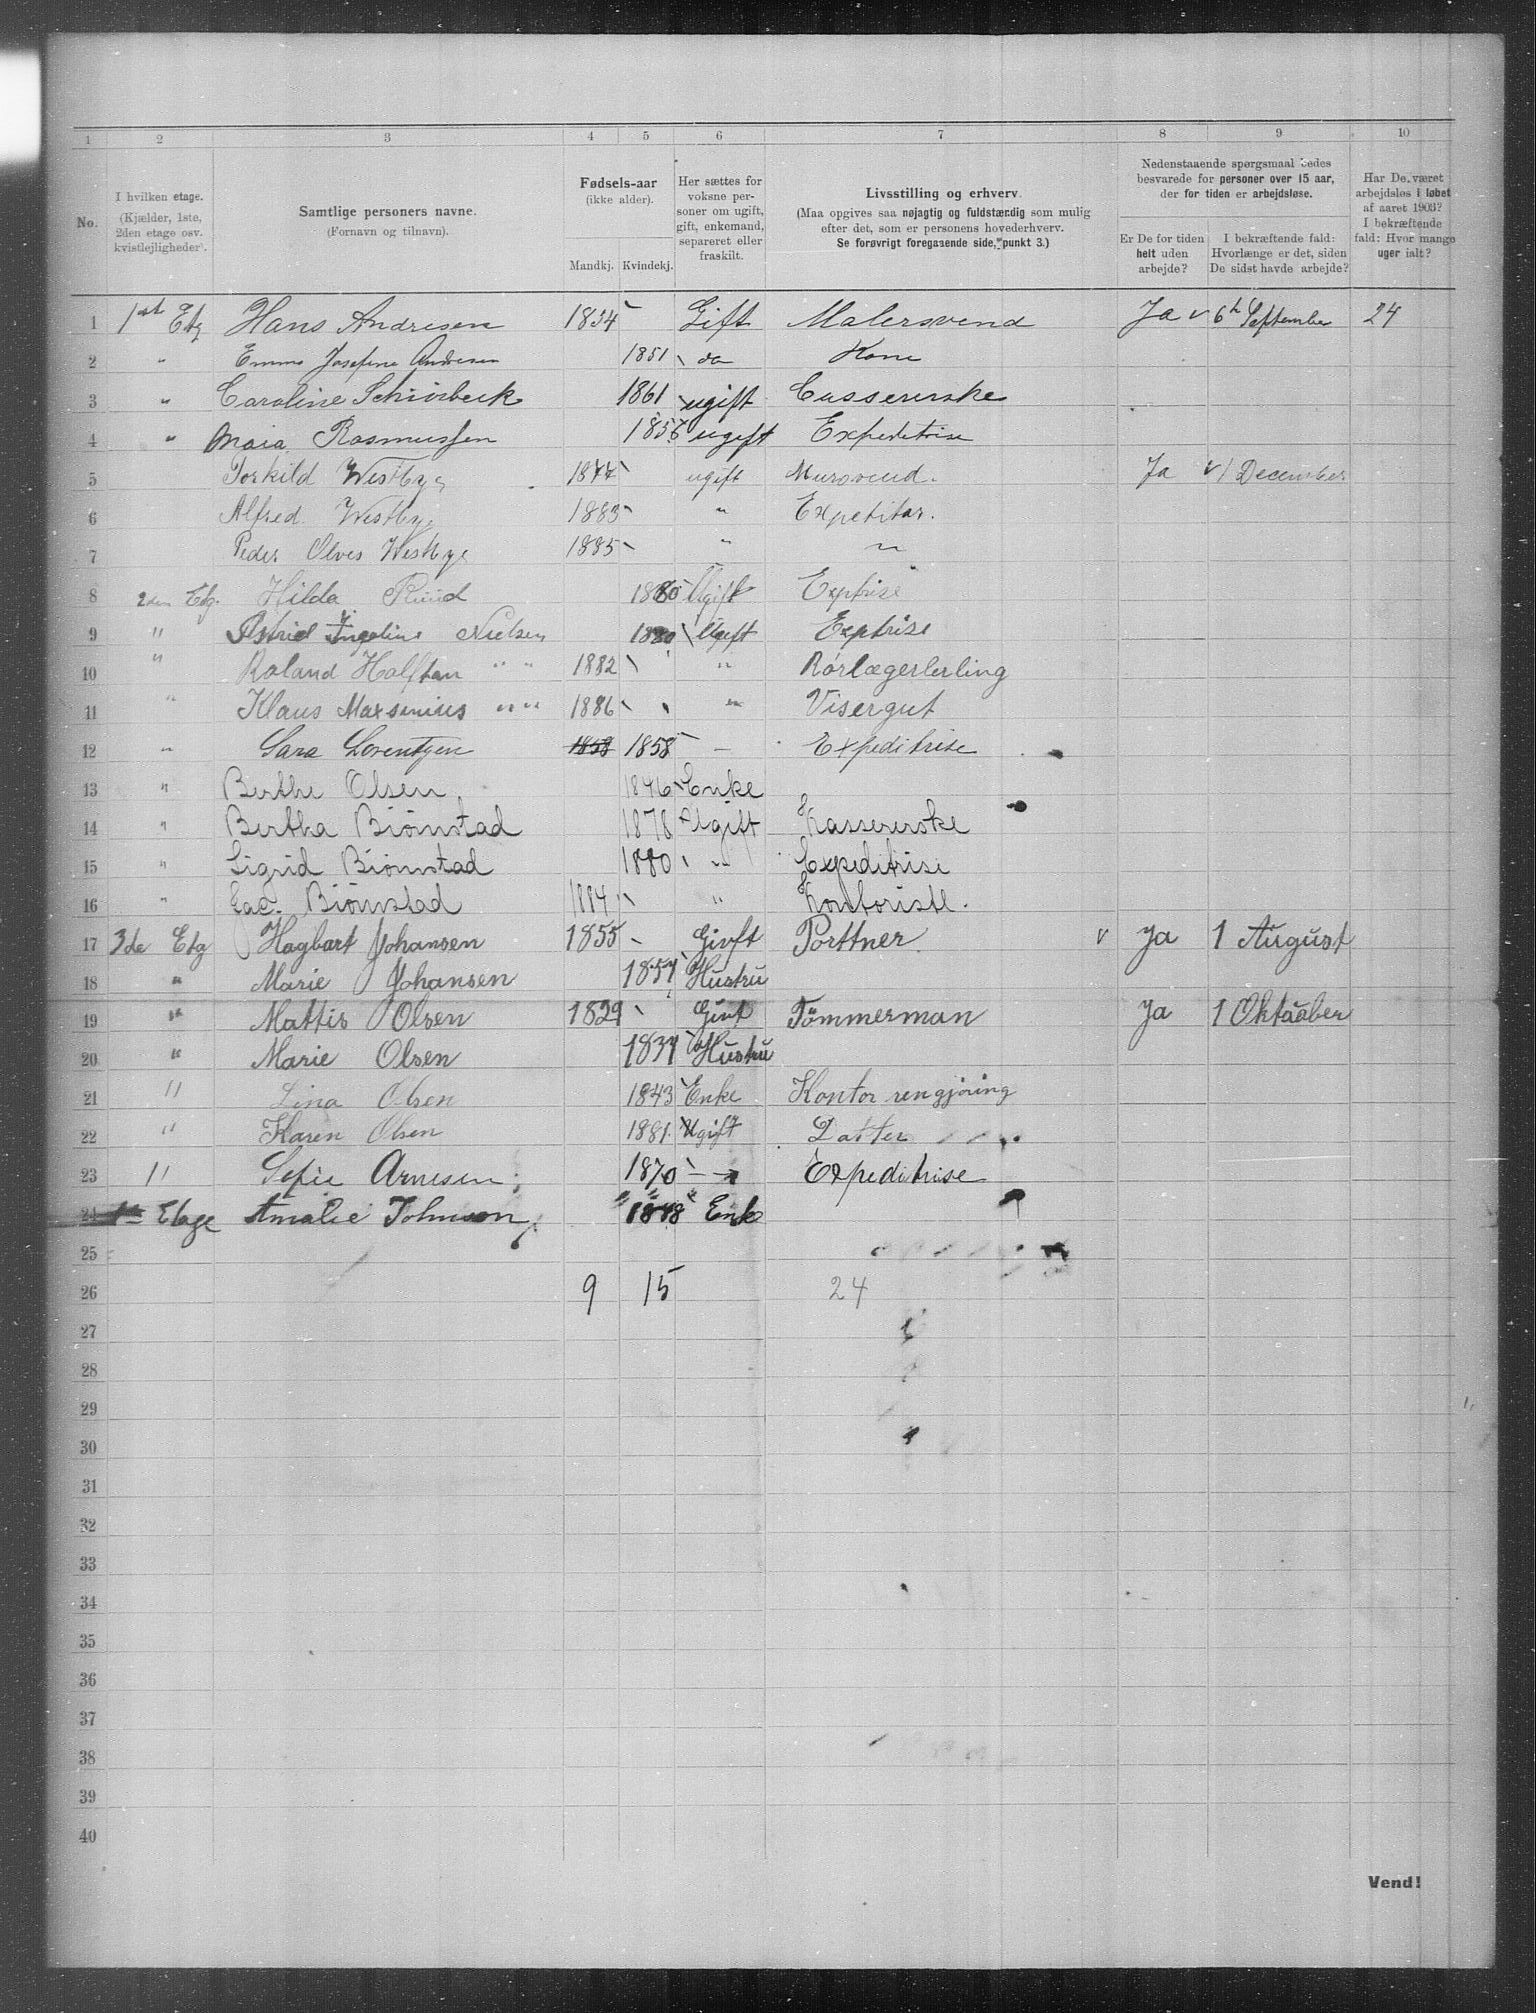 1 2 3 4 5 6 7 8 9 10
No.
I hvilken etage. (Kjælder, 1ste, 2den etage osv. kvistlejligheder).
Samtlige personers navne. (Fornavn og tilnavn).
Fødsels-aar (ikke alder). Mandkj. Kvindekj.
Her sættes for voksne personer om ugift, gift, enkemand, separeret eller fraskilt.
Livsstilling og erhverv. (Maa opgives saa nøjagtig og fuldstændig som mulig efter det, som er personens hovederhverv. Se forøvrigt foregaaende side, punkt 3.)
Nedenstaaende spørgsmaal bedes besvarede for personer over 15 aar, der for tiden er arbejdsløse.
Er De for tiden helt uden arbejde?
I bekræftende fald: Hvorlænge er det, siden De sidst havde arbejde?
Har De været arbejdsløs i løbet af aaret 1903? I bekræftende fald: Hvor mange uger ialt?
1 1st Etg Hans Andresen 1834 Gift Malersvend Ja 6te September 24
2 " Emma Josefine Andresen 1851 do Kone
3 " Caroline Schiørbeck 1861 ugift Cassererske
4 " Maia Rasmussen 1856 ugift Expeditrise
5 Torkild Westbye 1877 ugift Mursvend. Ja 1 December
6 Alfred Westbye 1883 " Expetitør.
7 Peder Olves Westbye 1885 " "
8 2den Etg. Hilda Ruud 1880 Ugift Exptrise
9 " Astrid Ingeline Nielsen 1880 Ugift Exptrise
10 " Roland Halftan " " 1882 " Rørlægerlerling
11 " Klaus Maxsimises " " 1886 " Visergut
12 " Sara Lorentzen 1858 1858 – Expeditrise
13 " Berthe Olsen 1846 Enke
14 " Bertha Biørnstad 1878 Ugift Kassererske
15 " Sigrid Biørnstad 1880 " Expeditrise
16 " Jac. Biørnstad 1884 " Kontorist.
17 3de Etg Hagbart Johansen 1855 Givft Porttner v Ja 1 August
18 " Marie Johansen 1857 Hustru
19 " Mattis Olsen 1829 Givt Tømmerman Ja 1 Oktaaber
20 " Marie Olsen 1837 Hustru
21 " Lina Olsen 1843 Enke Kontor rengjøring
22 " Karen Olsen 1881 Ugift Datter
23 " Sofie Arnesen 1870 – Expeditrise
24 1ste Etage Amalie Johnson 1848 Enke
25
26 9 15 24
27
28
29
30
31
32
33
34
35
36
37
38
39
40
Vend!